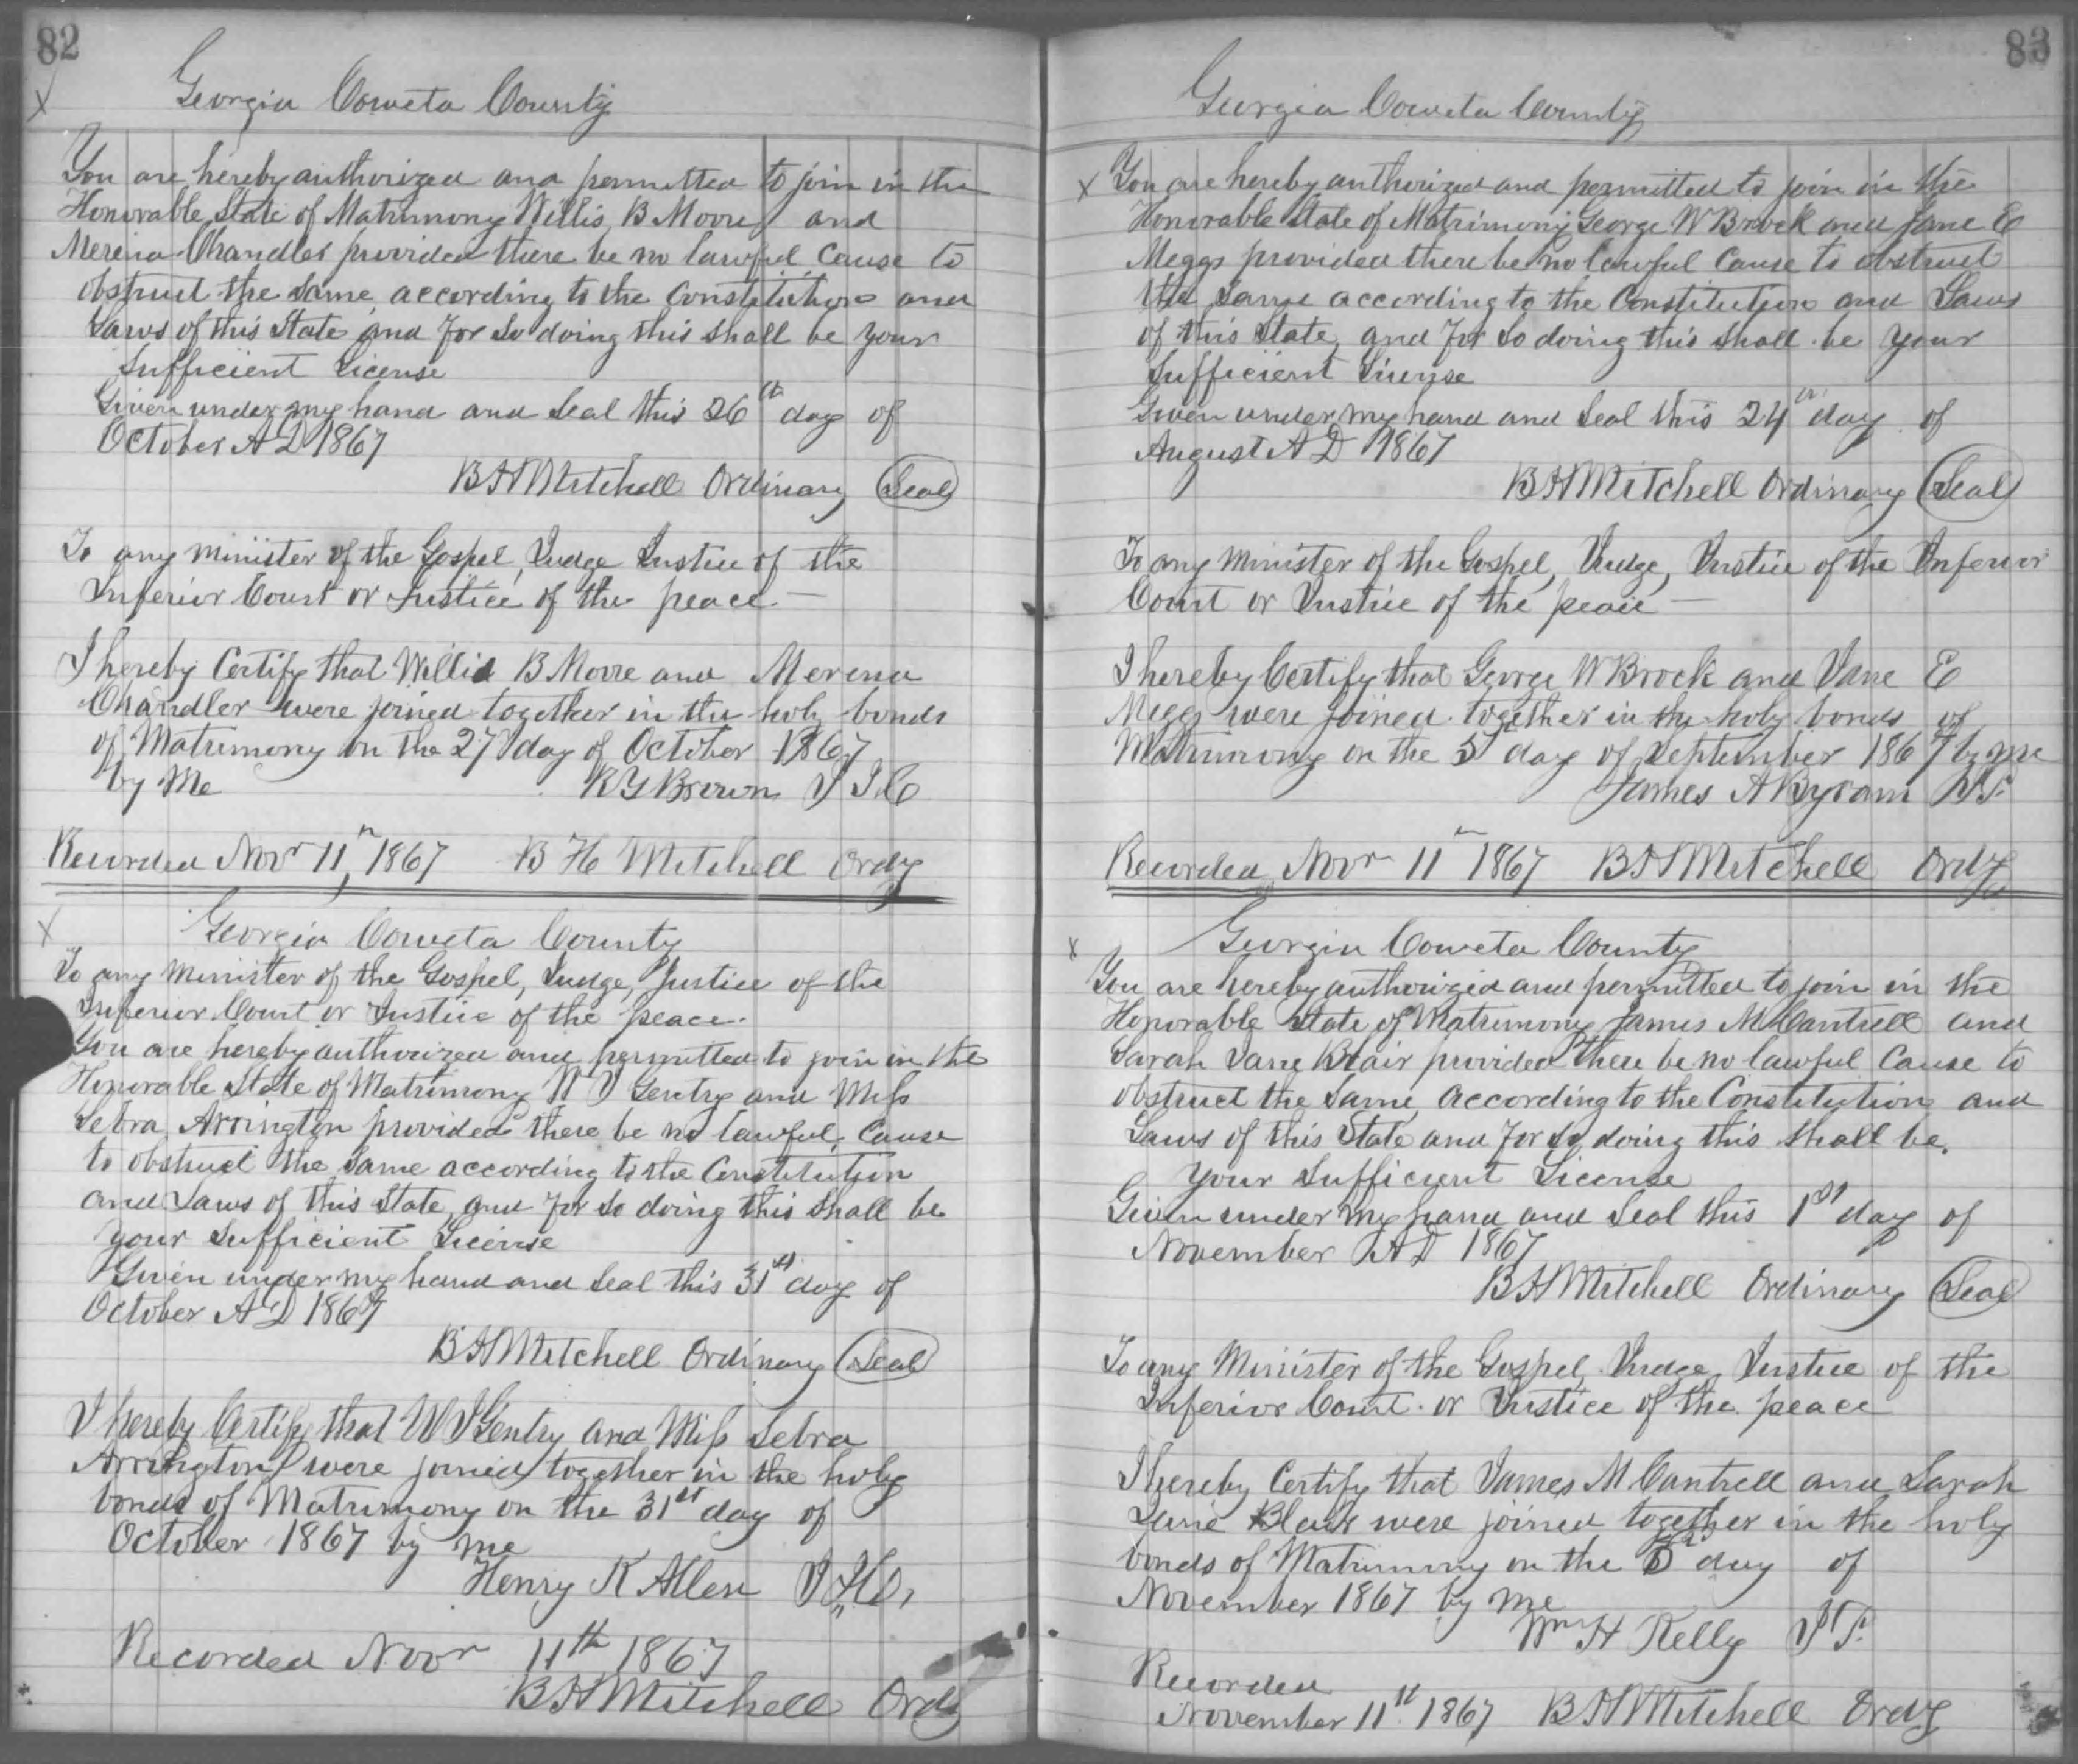 82
Georgia Coweta County
You are hereby authorized and permitted to join in the
Honorable State of Matrimony Willis B Moore and
Merena Chandler provided there be no lawful Cause to
obstruct the same according to the Constitution and
Laws of this State and for so doing this shall be your
sufficient License
Given under my hand and seal this 26th day of
October A D 1867
B H Mitchell Ordinary Seal
To any minister of the Gospel, Judge Justice of the
Inferior Court or Justice of the peace —
I hereby Certify that Willis B Moore and Merena
Chandler were joined together in the holy bonds
of Matrimony on the 27 day of October 1867
by Me R Y Brown J I C
Recorded Novr 11th, 1867 B H Mitchell Ordy
Georgia Coweta County
To any Minister of the Gospel, Judge, Justice of the
Inferior Court or Justice of the peace.
You are hereby authorized and permitted to join in the
Honorable State of Matrimony W J Gentry and Miss
Sebra Arrington provided there be no lawful Cause
to obstruct the same according to the Constitution
and Laws of this State, and for so doing this shall be
your sufficient License
Given under my hand and seal this 31st day of
October A D 1867
B H Mitchell Ordinary Seal
I hereby Certify that W J Gentry and Miss Sebra
Arrington were joined together in the holy
bonds of Matrimony on the 31st day of
October 1867 by me
Henry K Allen
Recorded Novr 11th 1867
B H Mitchell Ordy
83
Georgia Coweta County
You are hereby authorized and permitted to join in the
Honorable State of Matrimony George W Brock and Jane E
Meggs provided there be no lawful Cause to obstruct
the Same according to the Constitution and Laws
of this State, and for so doing this shall be your
sufficient License
Given under my hand and seal this 24th day of
August A D 1867
B H Mitchell Ordinary Seal
To any Minister of the Gospel, Judge, Justice of the Inferior
Court or Justice of the peace —
I hereby Certify that George W Brock and Jane E
Meggs were joined together in the holy bonds of
Matrimony on the 5 day of September 1867 by me
James A Byram J P.
Recorded Novr 11th 1867 B H Mitchell Ordy
Georgia Coweta County
You are hereby authorized and permitted to join in the
Honorable State of Matrimony James M Cantrell and
Sarah Jane Blair provided there be no lawful Cause to
obstruct the same according to the Constitution and
Laws of this State and for so doing this shall be
your sufficient License
Given under my hand and seal this 1st day of
November A D 1867
B H Mitchell Ordinary Seal
To any Minister of the Gospel, Judge, Justice of the
Inferior Court or Justice of the peace
I hereby Certify that James M Cantrell and Sarah
Jane Blair were joined together in the holy
bonds of Matrimony on the day of
November 1867 by me
Wm H Kelly J P.
Recorded
November 11th 1867 B H Mitchell Ordy